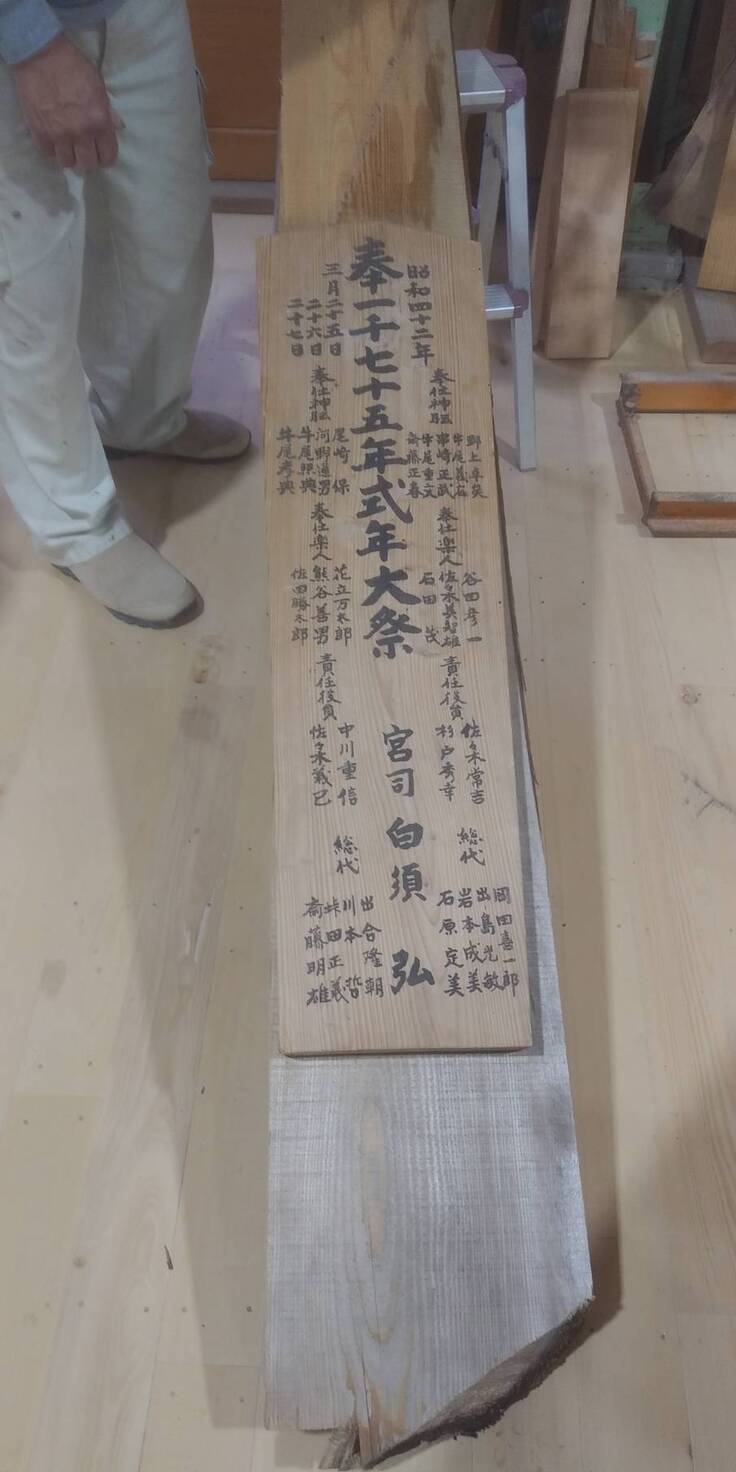 奉一千七十五年式年大祭
宮司 白須 弘
昭和四十二年
三月二十五日
二十六日
二十七日
奉仕神職
野上卓英
牛尾義右
宮崎正武
牛尾重文
斎藤正春
奉仕神職
尾崎 保
河野道男
牛尾照典
牛尾孝典
奉仕楽人
谷田彦一
佐々木英智雄
石田 茂
奉仕楽人
花立万太郎
熊谷善男
佐田勝太郎
責任役員
佐々木常吉
杉戸秀幸
責任役員
中川重信
佐々木義已
総代
岡田喜一郎
出島光敏
岩本成美
石原定美
総代
出合隆朝
川本 哲
田正義
斎藤明雄